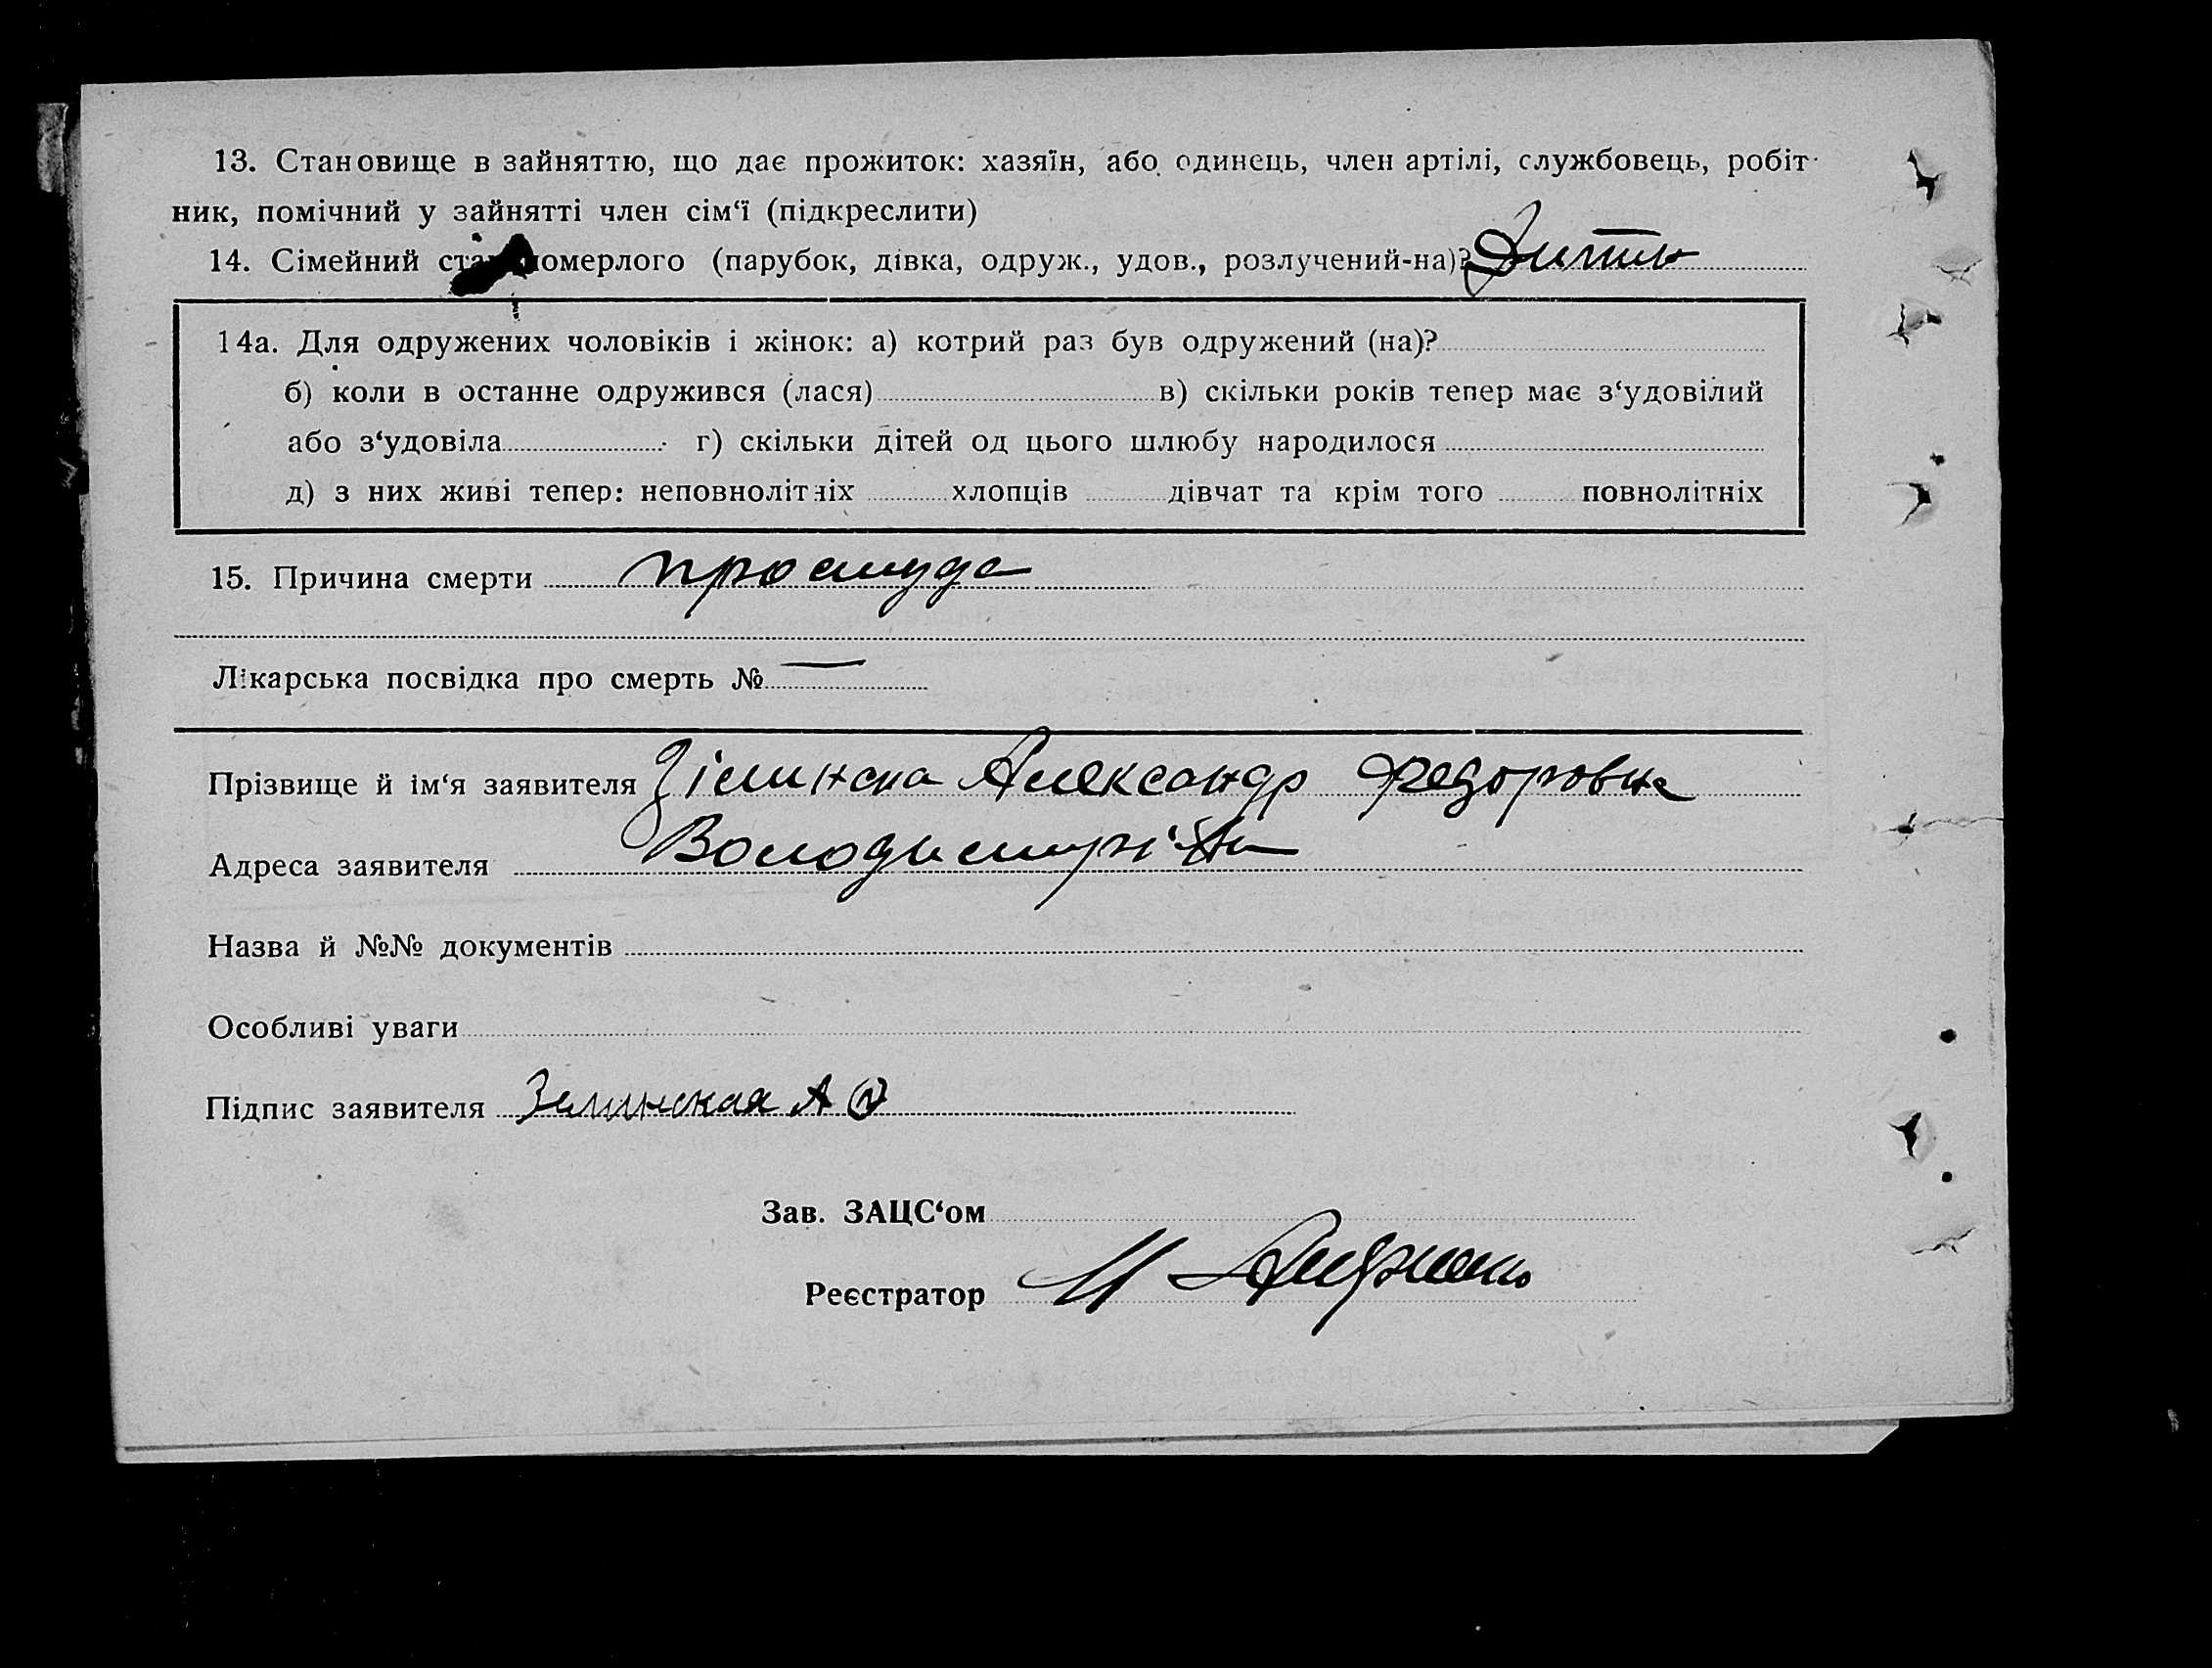 13. Становище в зайняттю, що дає прожиток: хазяїн, або одинець, член артілі, службовець, робіт-
ник, помічний у зайнятті член сім‘ї (підкреслити)
14. Сімейний стан померлого (парубок, дівка, одруж., удов., розлучений-на)? Дитя
14а. Для одружених чоловіків і жінок: а) котрий раз був одружений (на)?
б) коли в останне одружився (лася) в) скільки років тепер має з‘удовілий
або з‘удовіла г) скільки дітей од цього шлюбу народилося
д) з них живі тепер: неповнолітніх хлопців дівчат та крім того повнолітніх
15. Причина смерти простуда
Лікарська посвідка про смерть № —
Прізвище й ім‘я заявителя Зілинска Александр Федоровна
Адреса заявителя
Назва й №№ документів
Особливі уваги
Підпис заявителя Зелинская А Ф
Зав. ЗАЦС‘ом
Реєстратор